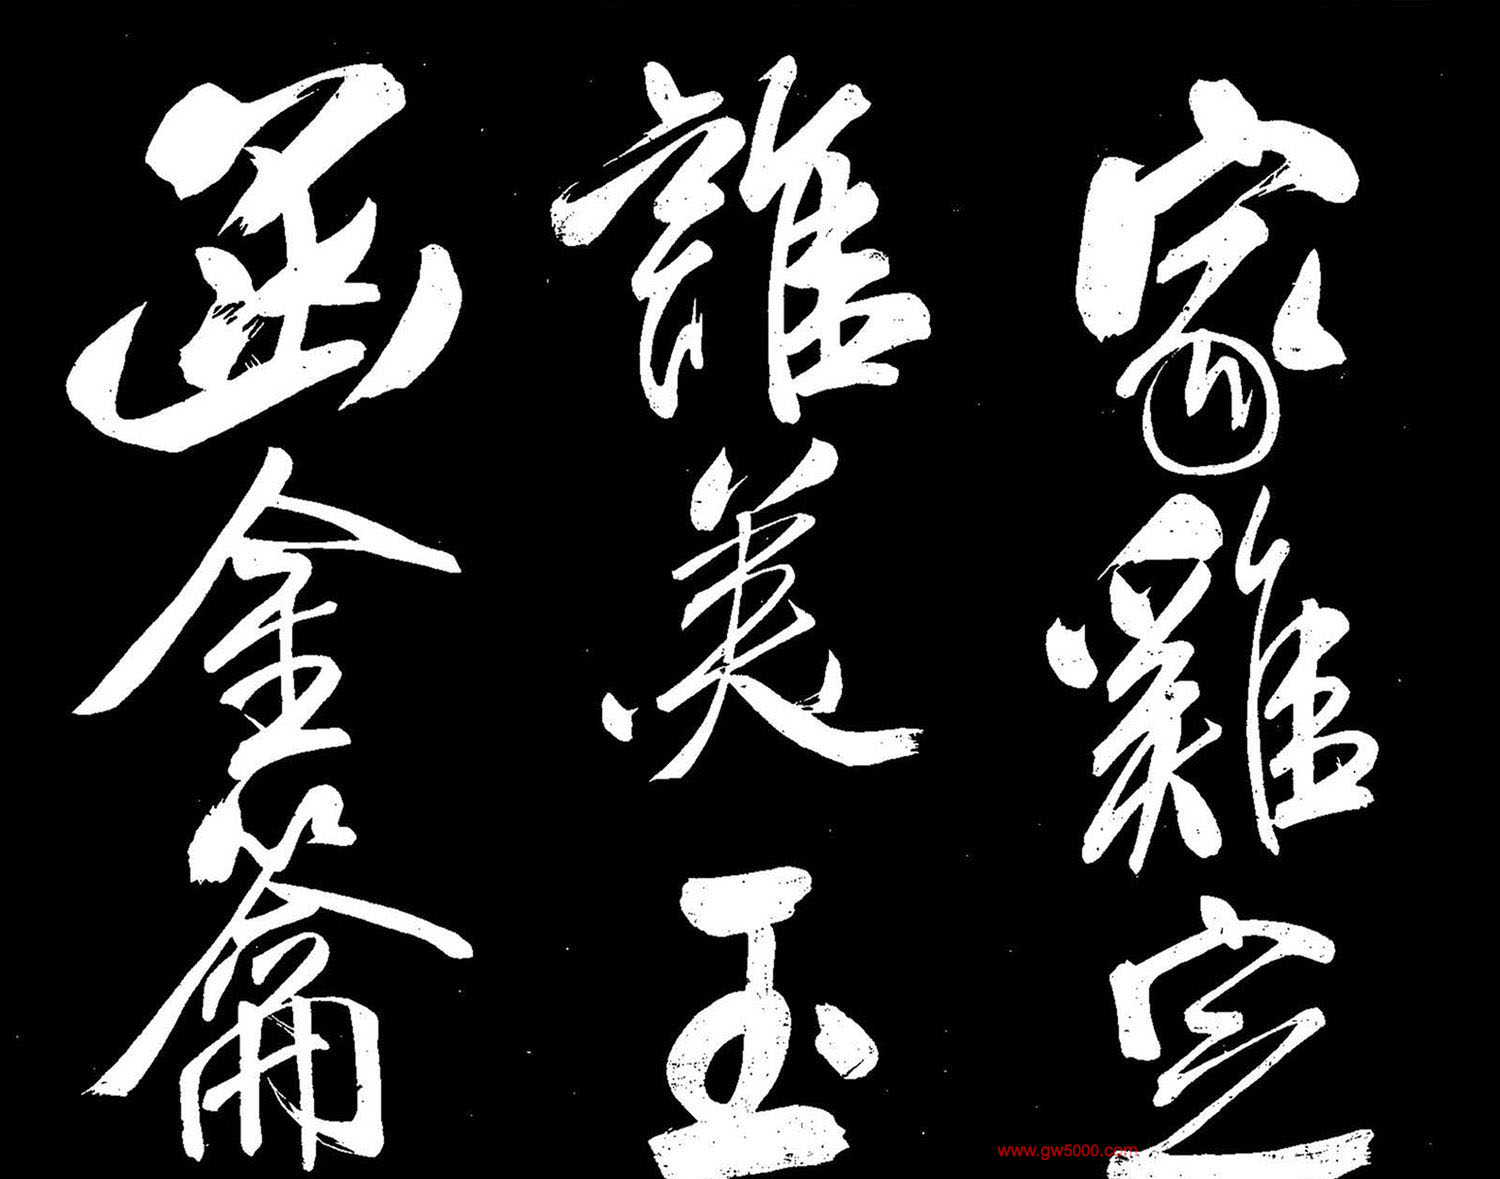 家雞定
誰美玉
函金籥
www.gw5000.com